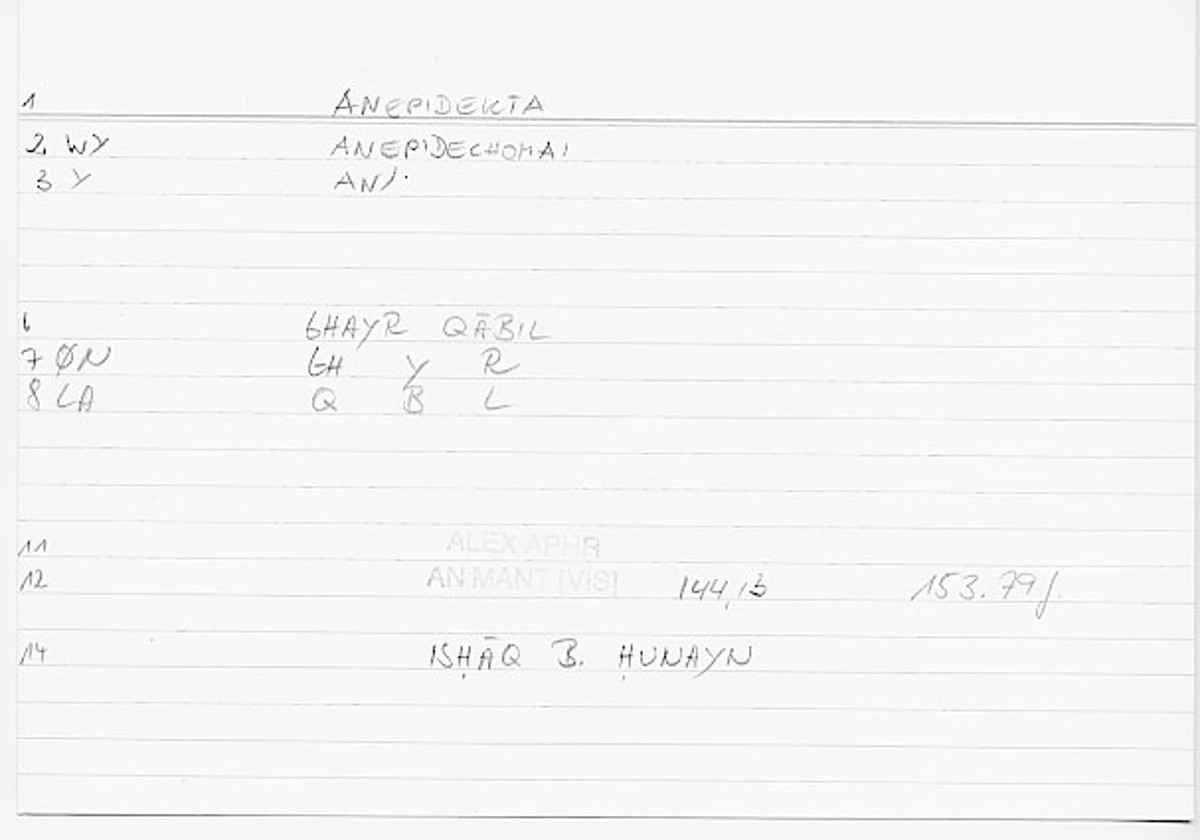 1 ANEPIDEKTA
2, WY ANEPIDECHOMAI
3 Y AN/·
6 GHAYR QĀBIL
7 ØN GH Y R
8 LA Q B L
11 ALEX APHR
12 AN MANT [VIS] 144,13 153.79f.
14 ISḤĀQ B. ḤUNAYN